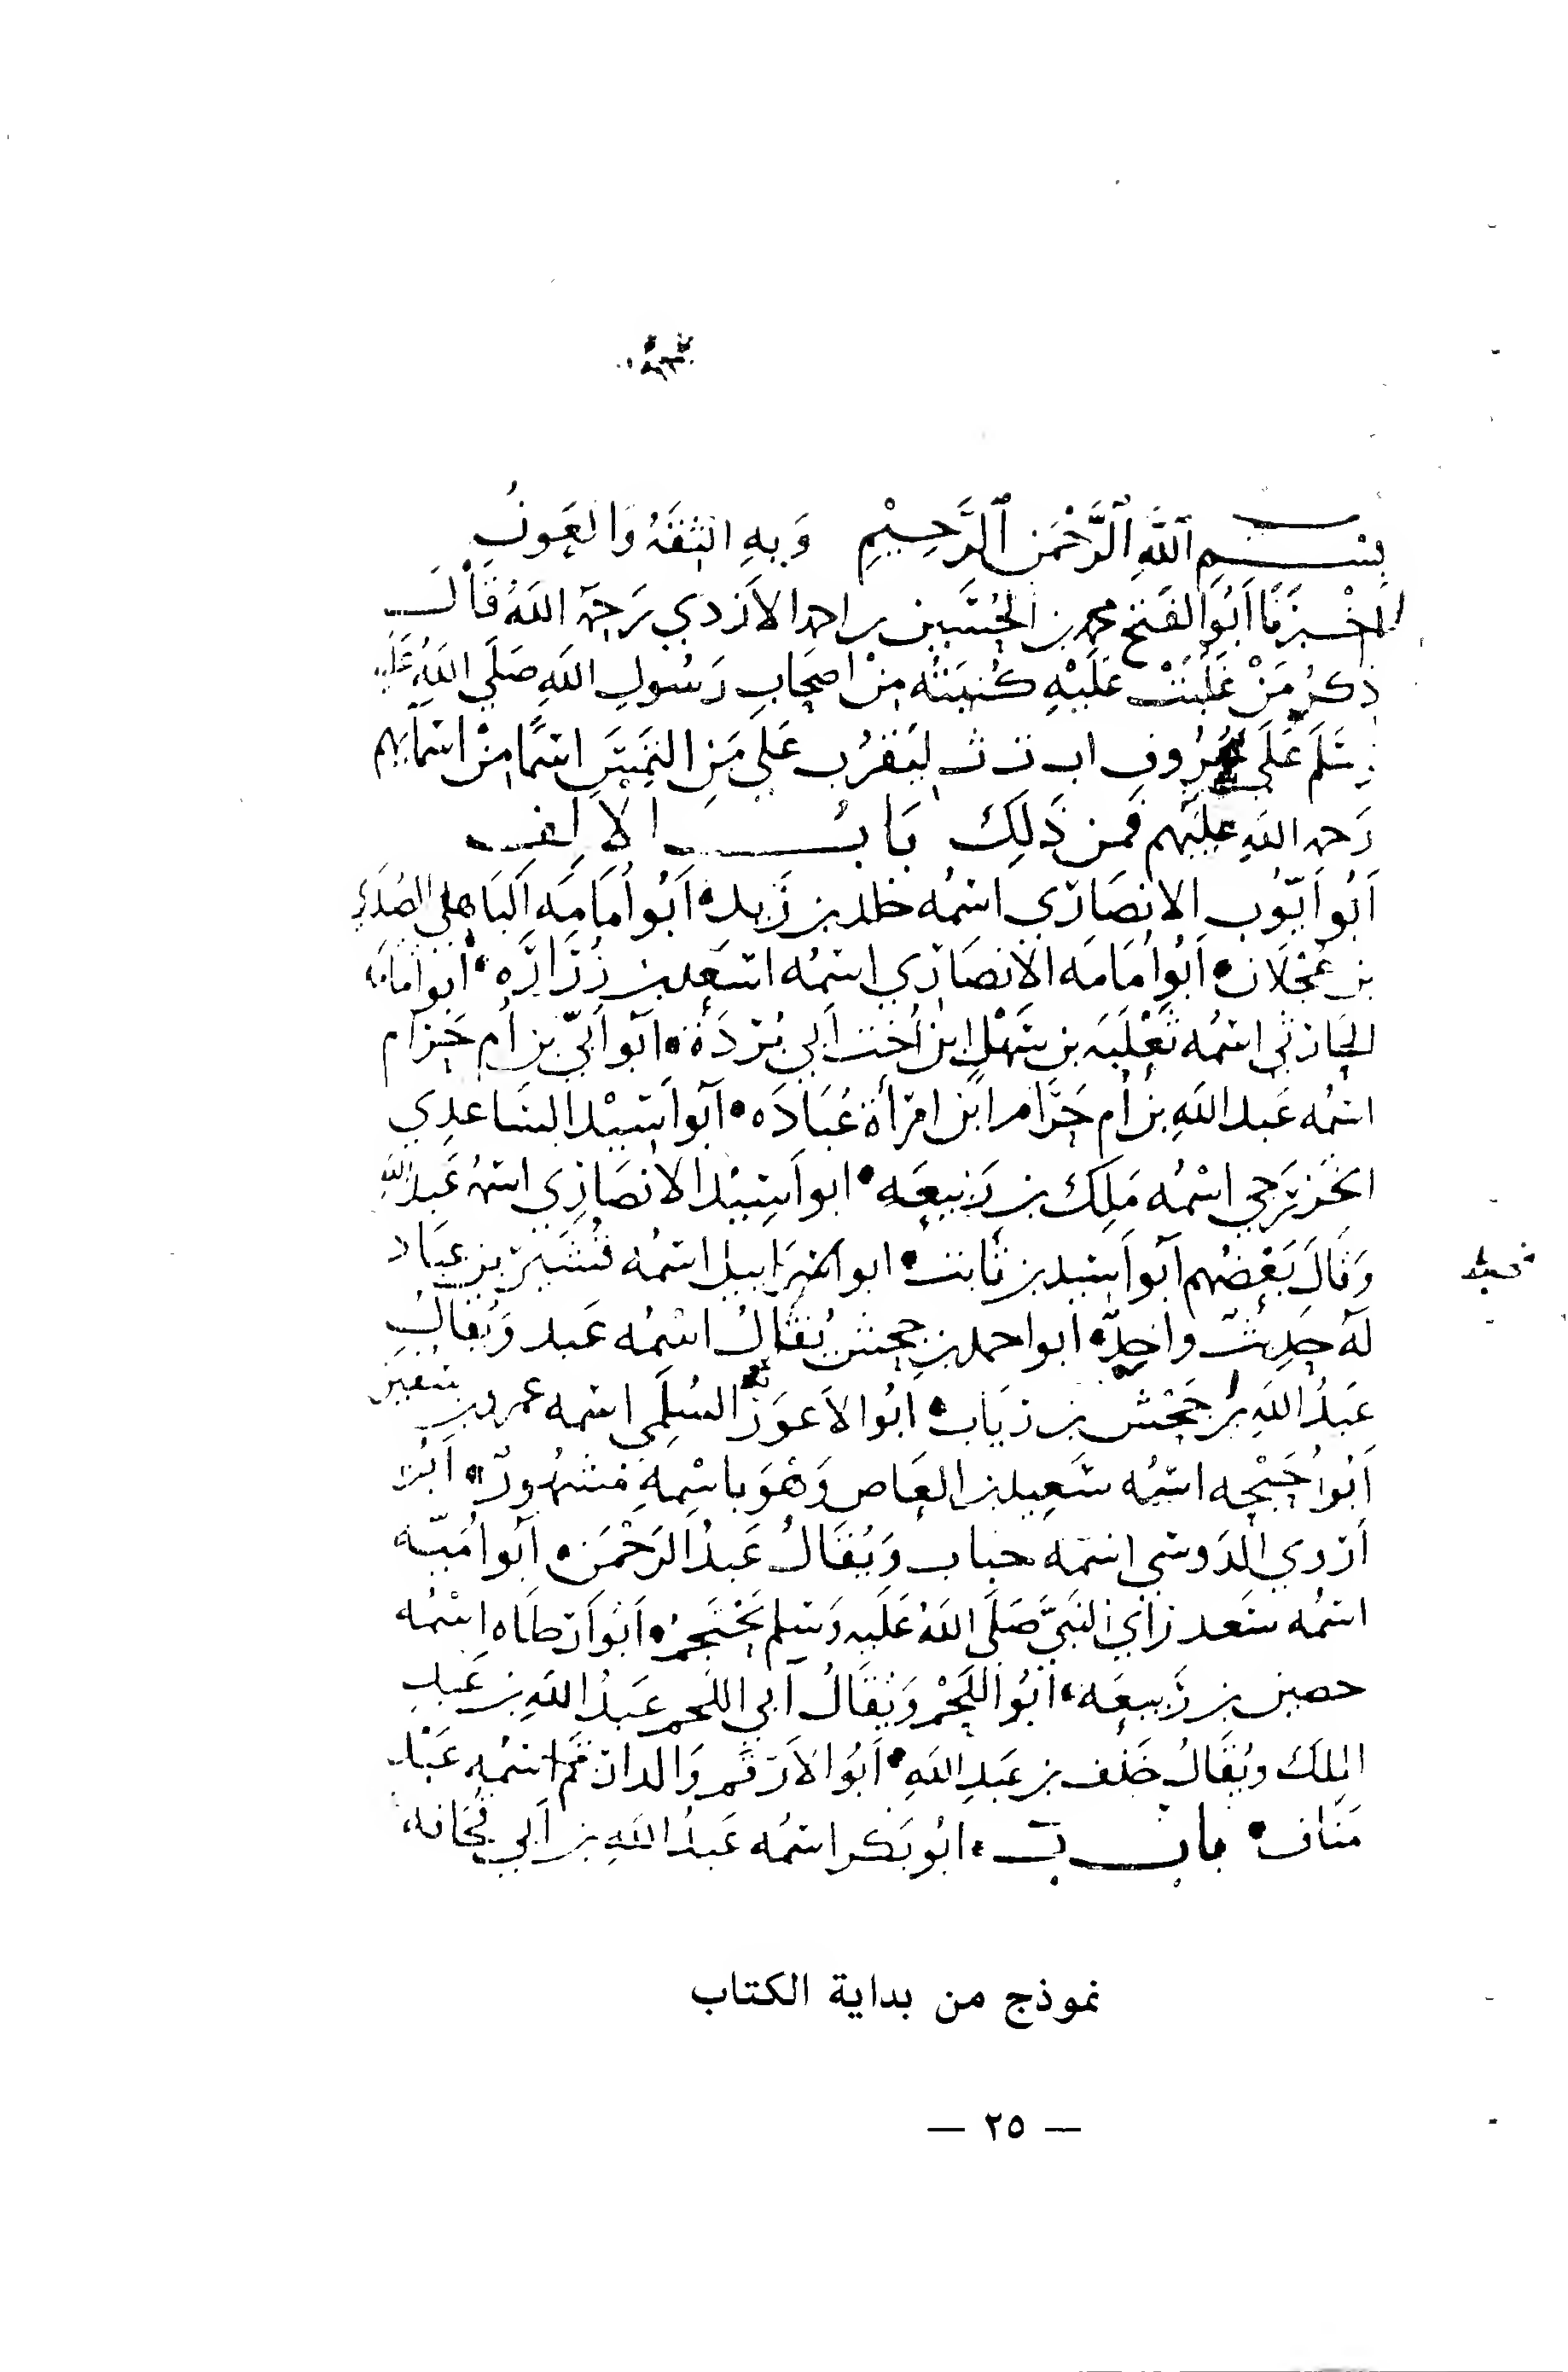 بِسْمِ ٱللَّهِ ٱلرَّحْمَنِ ٱلرَّحِيْمِ وَبِهِ الثِقَةُ وَالعَونُ
أَخْبَرَنَا أَبُو الفَتح محمد بن الحُسَين بن احمد الازدي رَحِمَهُ اللهُ قَالَ
ذِكرُ مَنْ غَلَبَتْ عَلَيْهِ كُنيَتُه مِنْ اصحَابِ رَسُولِ اللهِ صَلَّى اللهُ عَلَيهِ
وَسَلَّمَ عَلَى حُرُوفِ ا ب ت ث لِيَقرُب عَلى مَنِ التَمَسَ اسمًا مِنْ اسمَايهِم
رَحمه اللهِ عَلَيهِم فَمن ذَلِكَ بَابُ الالِفِ
أَبُو أَيّوُب الانصَارِي اسمُه خلد بن زَيد ۞ أَبُو أُمَامَه البَاهِلي الصُدَيُّ
بن عَجْلَان ۞ أَبُو أُمَامَه الانصَارِي اسمُه اسعَد بن زُرَارَه ۞ أبو أمامَة
الحَارثي اسمُه ثَعْلَبَه بن سَهْلٍ ابن أُختِ أَبي بُردَة ۞ أَبو أُبَيّ بن أُم حَرَام
اسمُه عَبد اللهِ بن أُم حَرَام ابن امرَأة عُبَادَه ۞ أَبو أُسَيْد السَاعدِي
الخَزرَجي اسْمُه مَلِك بن رَبيعَه ۞ ابو أَسِيْد الانصَارِي اسمُهُ عَبدُ اللهِ
وَقَالَ بَعْضُهم أَبو أَسِيد بن ثَابت ۞ ابو اسمُه شُرَ بن عبَاد
لَهُ حَدِيثٌ واحِدٌ ۞ ابو احمد بن جحش يُقَالُ اسْمُه عَبد وَيُقَالُ
عَبدُ اللهِ بنُ جَحْش بن رِيَاب ۞ ابُو الاَعوَر السُلَمِي اسمه عمرو بن سفين
أَبُو أُحَيْحه اسمُه سَعِيد بن العَاص وَهُوَ باسْمِهِ مَشهُورٌ ۞ أَبُو
أَروي الدَوسي اسمَه حباب وَيُقَالُ عَبدُ الرَحْمَن ۞ أَبو أُمَيّه
اسمُه سَعد رَأي النَبيَّ صَلَّى اللهُ عَلَيهِ وَسَلم يَحْتَجِمُ ۞ أَبُو أَرطَاه اسْمُه
حصين بن رَبيعَه ۞ أَبُو اللَحْم وَيُقَالُ آبِي اللحم عَبدُ اللهِ بن عَبدِ
المَلِكِ وَيُقَالُ خَلَف بن عَبدِ اللهِ ۞ أَبُو الاَرقَم وَالد ارقَم اسمُه عَبْد
مَنَاف ۞ بابُ ب ۞ ابُو بَكر اسمُه عَبدُ اللهِ بن أَبي قُحَافه
نموذج من بداية الكتاب
— ٢٥ —